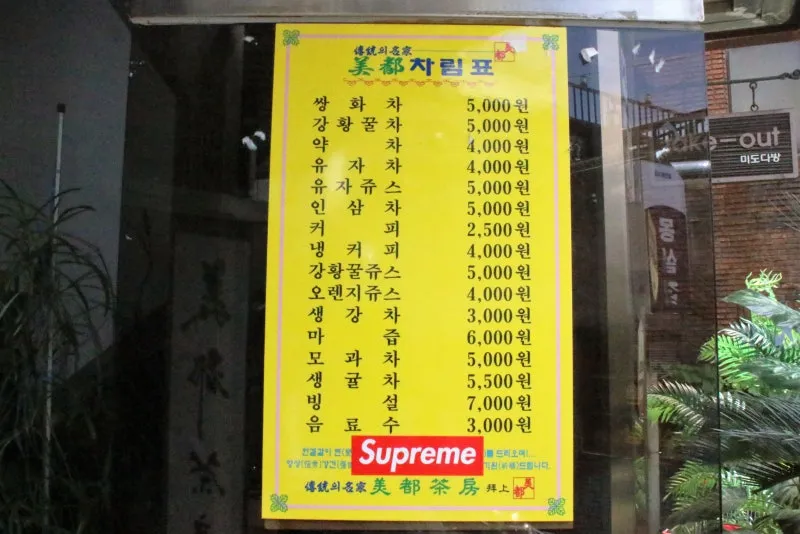 傳統의 名家
美都차림표
쌍화차 5,000원
강황꿀차 5,000원
약차 4,000원
유자차 4,000원
유자쥬스 5,000원
인삼차 5,000원
커피 2,500원
냉커피 4,000원
강황꿀쥬스 5,000원
오렌지쥬스 4,000원
생강차 3,000원
마즙 6,000원
모과차 5,000원
생귤차 5,500원
빙설 7,000원
음료수 3,000원
드리오며...
드립니다.
Supreme
傳統의 名家 美都茶房 拜上 美都
take-out
미도다방